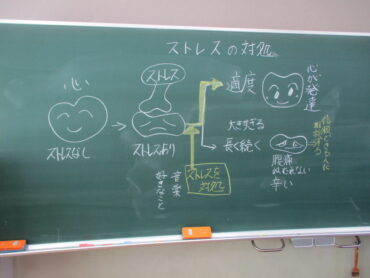 ストレスの対処
心
ストレスなし
ストレス
ストレスあり
適度
心が発達
大きすぎる
長く続く
腹痛
ねむれない
辛い
信頼できる人に
相談する
ストレスを
対処
音楽
好きなこと